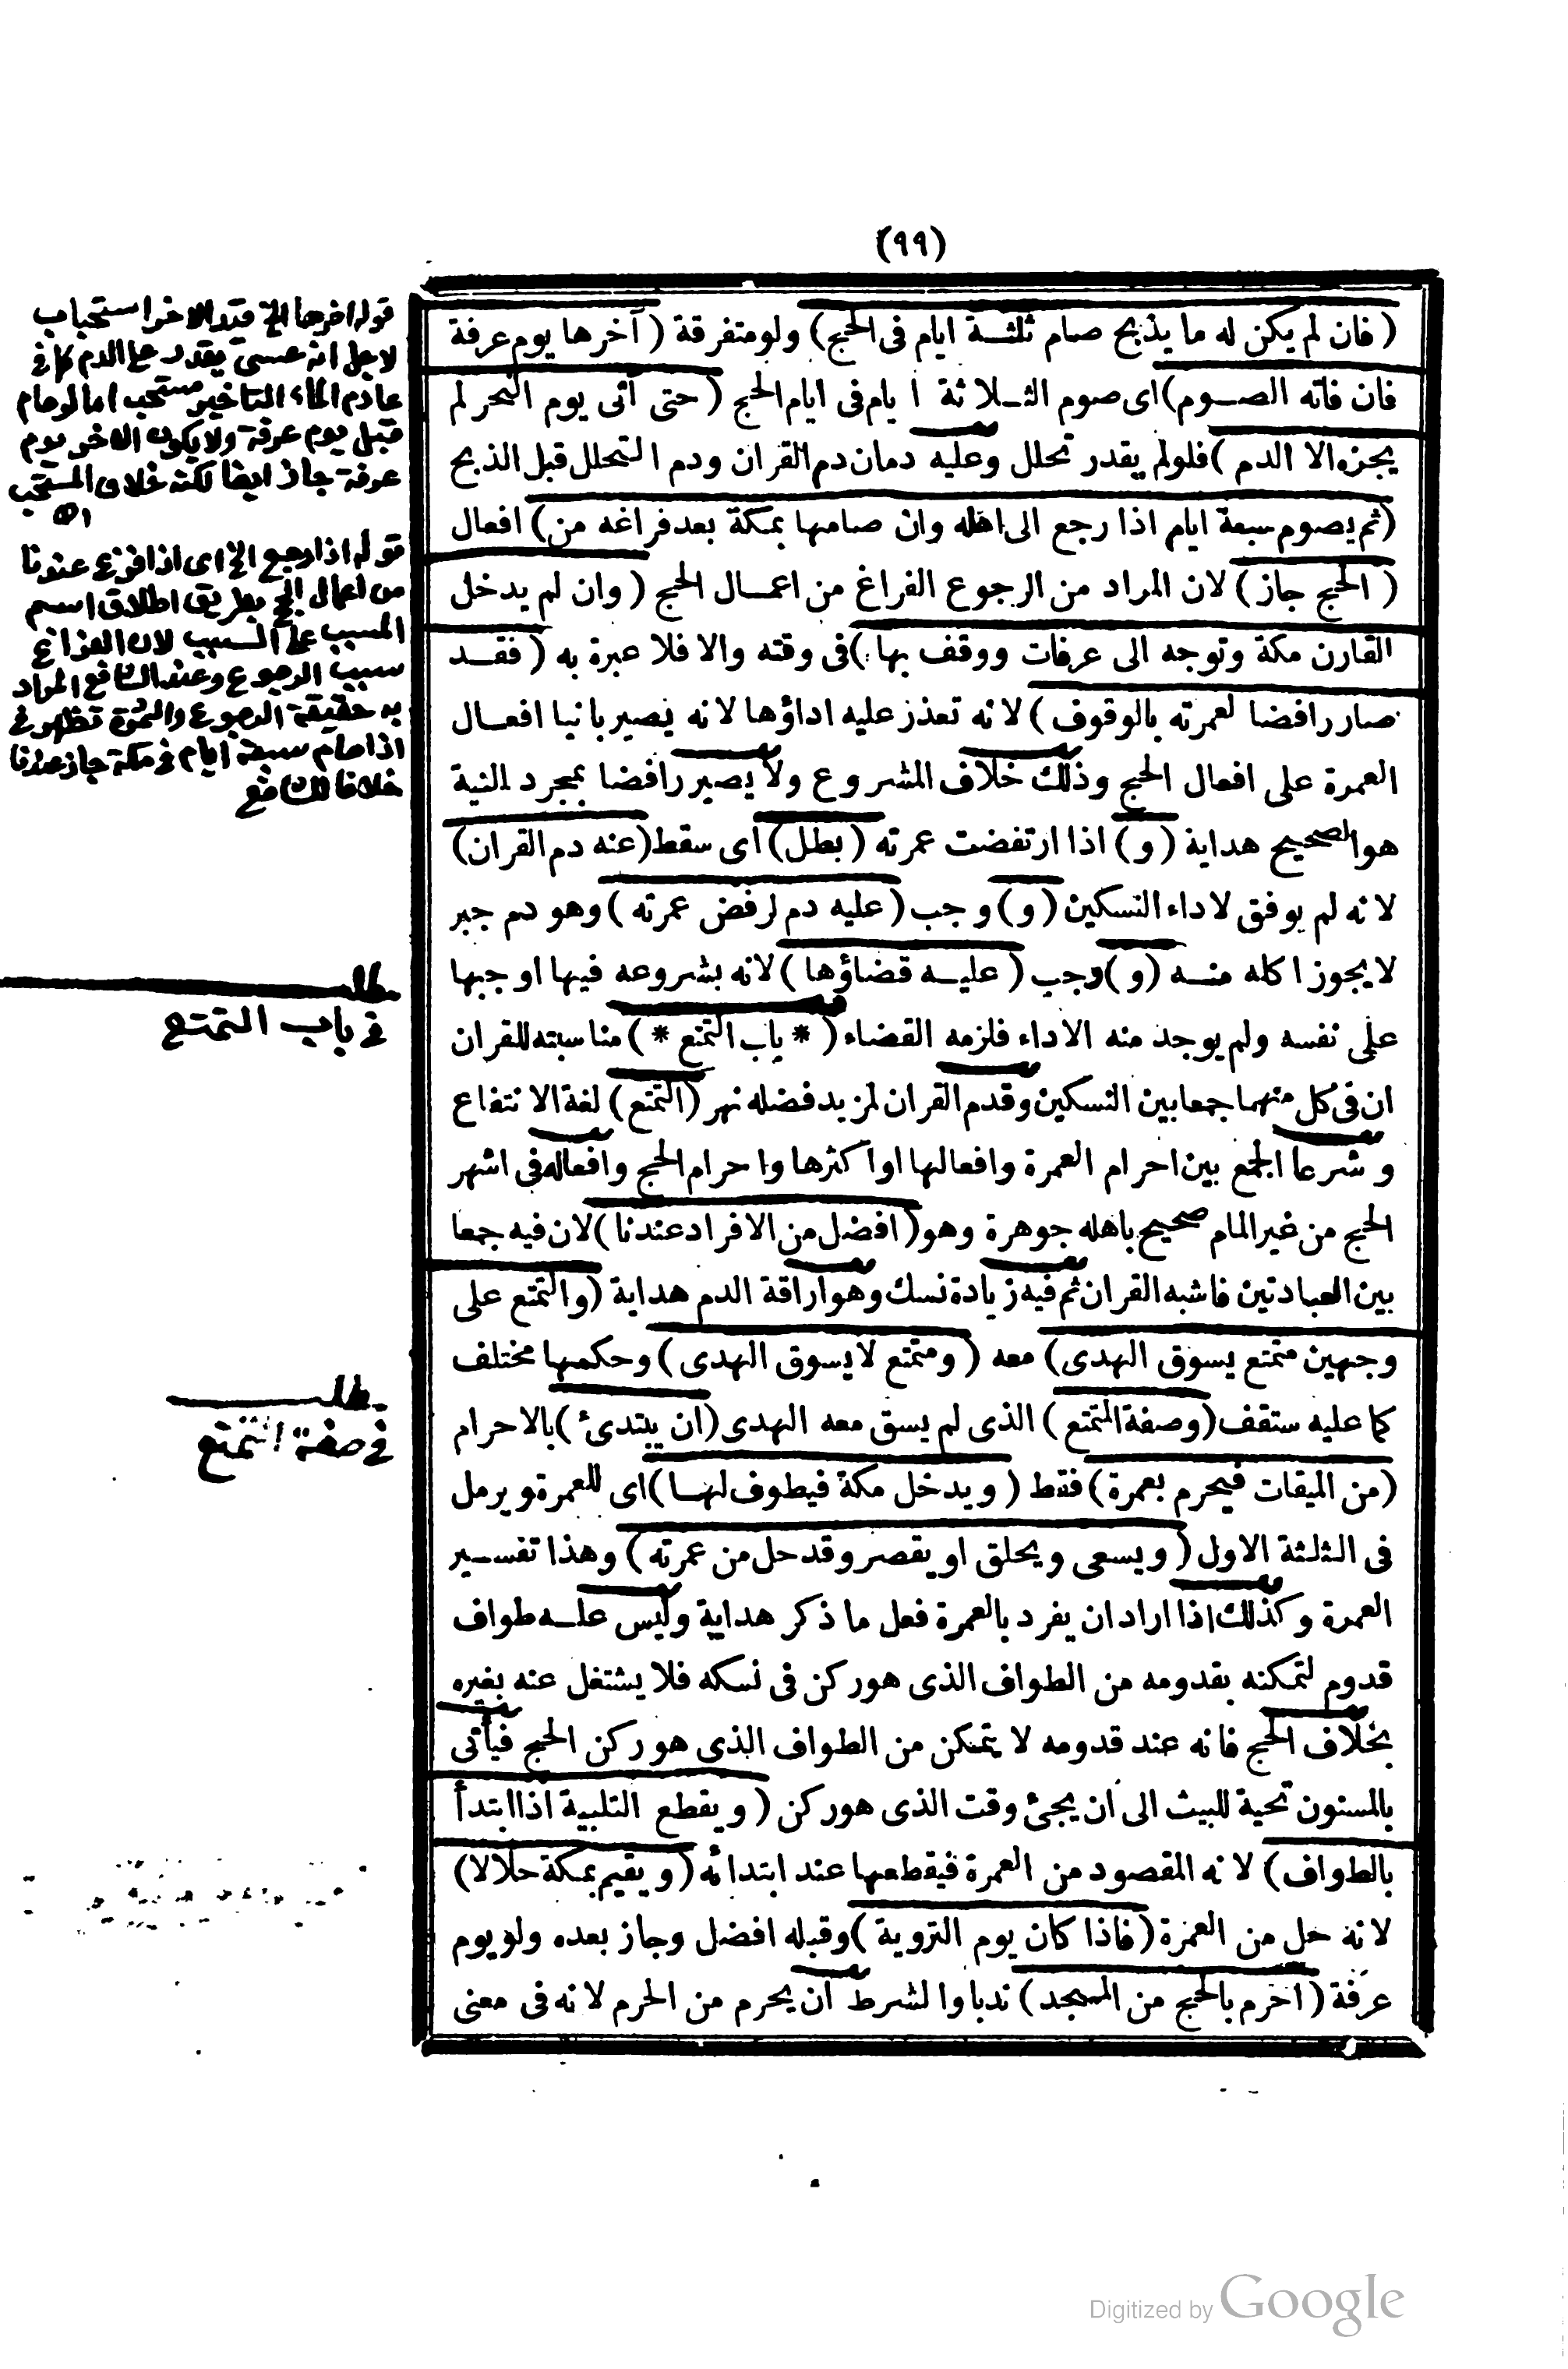 (٩٩)
(فان لم يكن له ما يذبح صام ثلثة ايام فى الحج) ولو متفرقة (آخرها يوم عرفة
فان فاته الصوم) اى صوم الثلاثة ايام فى ايام الحج (حتى أتى يوم النحر لم
يجزه الا الدم) فلولم يقدر تحلل وعليه دمان دم القران ودم التحلل قبل الذبح
(ثم يصوم سبعة ايام اذا رجع الى اهله وان صامها بمكة بعد فراغه من) افعال
(الحج جاز) لان المراد من الرجوع الفراغ من اعمال الحج (وان لم يدخل
القارن مكة وتوجه الى عرفات ووقف بها) فى وقته والا فلا عبرة به (فقد
صار رافضا لعمرته بالوقوف) لانه تعذر عليه اداؤها لانه يصير بانيا افعال
العمرة على افعال الحج وذلك خلاف المشروع ولا يصير رافضا بمجرد النية
هو الصحيح هداية (و) اذا ارتفضت عمرته (بطل) اى سقط (عنه دم القران)
لانه لم يوفق لاداء النسكين (و) وجب (عليه دم لرفض عمرته) وهو دم جبر
لا يجوز اكله منه (و) وجب (عليه قضاؤها) لانه بشروعه فيها اوجبها
على نفسه ولم يوجد منه الاداء فلزمه القضاء (* باب التمتع *) مناسبته للقران
ان فى كل منهما جمعا بين النسكين وقدم القران لمزيد فضله نهر (التمتع) لغة الانتفاع
وشرعا الجمع بين احرام العمرة وافعالها او اكثرها واحرام الحج وافعاله فى اشهر
الحج من غير المام صحيح باهله جوهرة وهو (افضل من الافراد عندنا) لان فيه جمعا
بين العبادتين فاشبه القران ثم فيه زيادة نسك وهو اراقة الدم هداية (والتمتع على
وجهين متمتع يسوق الهدى) معه (ومتمتع لا يسوق الهدى) وحكمها مختلف
كما عليه ستقف (وصفة المتمتع) الذى لم يسق معه الهدى (ان يبتدئ) بالاحرام
(من الميقات فيحرم بعمرة) فقط (ويدخل مكة فيطوف لها) اى للعمرة ويرمل
فى الثلثة الاول (ويسعى ويحلق او يقصر وقد حل من عمرته) وهذا تفسير
العمرة وكذلك اذا اراد ان يفرد بالعمرة فعل ما ذكر هداية وليس عليه طواف
قدوم لتمكنه بقدومه من الطواف الذى هو ركن فى نسكه فلا يشتغل عنه بغيره
بخلاف الحج فانه عند قدومه لا يتمكن من الطواف الذى هو ركن الحج فيأتى
بالمسنون تحية للبيت الى ان يجئ وقت الذى هو ركن (ويقطع التلبية اذا ابتدأ
بالطواف) لانه المقصود من العمرة فيقطعها عند ابتدائه (ويقيم بمكة حلالا)
لانه حل من العمرة (فاذا كان يوم التروية) وقبله افضل وجاز بعده ولو يوم
عرفة (احرم بالحج من المسجد) ندبا والشرط ان يحرم من الحرم لانه فى معنى
قوله اخرها الخ قيد الاخر استحباب
لاجل انه عسى يقدر على الدم كما فى
عادم الماء التاخير مستحب اما لو صام
قبل يوم عرفة ولا يكون الاخر يوم
عرفة جاز ايضا لكنه خلاف المستحب
قوله اذا رجع الخ اى اذا فرغ عندنا
من اعمال الحج بطريق اطلاق اسم
المسبب على السبب لان الفراغ
سبب الرجوع وعند الشافعى المراد
به حقيقة الرجوع والثمرة تظهر فى
اذا صام سبعة ايام فى مكة جاز عندنا
خلافا للشافعى
مطلب
فى باب التمتع
مطلب
فى صفة التمتع
Digitized by Google